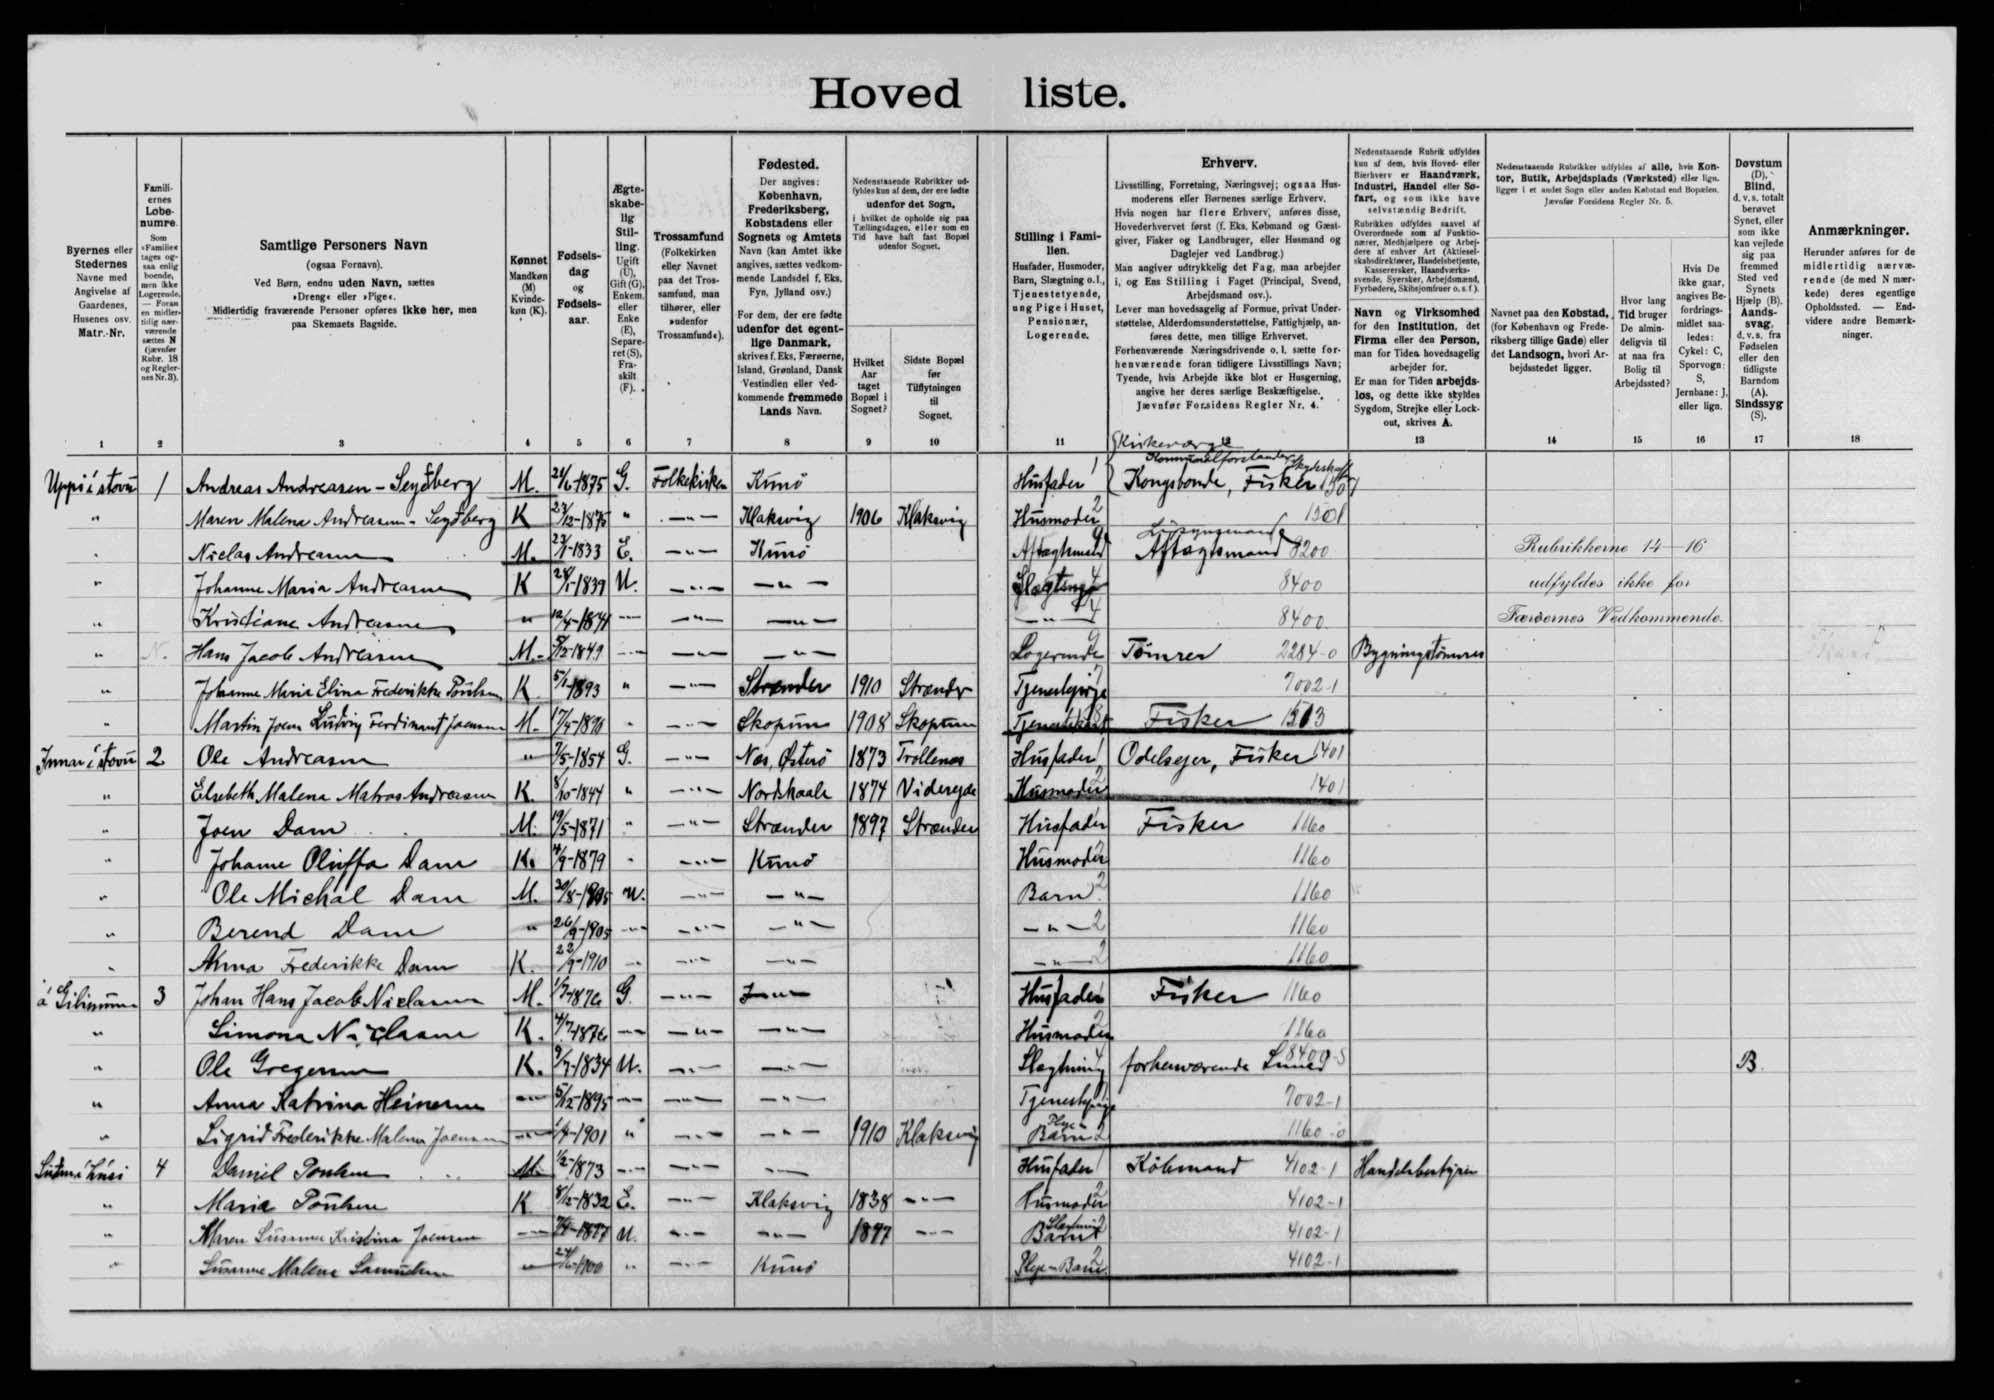 Hoved liste.
Byernes eller Stedernes Navne med Angivelse af Gaardenes, Husenes osv. Matr.-Nr.
Familiernes Løbenumre.
Samtlige Personers Navn
(ogsaa Fornavn).
Ved Børn, endnu uden Navn, sættes
»Dreng« eller »Pige«.
Midlertidig fraværende Personer opføres ikke her, men
paa Skemaets Bagside.
Kønnet
Mandkøn (M) Kvindekøn (K).
Fødselsdag og Fødselsaar.
Ægteskabelig Stilling.
Ugift (U), Gift (G), Enkem. eller Enke (E), Separeret (S), Fraskilt (F).
Trossamfund
(Folkekirken eller Navnet paa det Trossamfund, man tilhører, eller »udenfor Trossamfund«).
Fødested.
Der angives: København, Frederiksberg, Købstadens eller Sognets og Amtets Navn (kan Amtet ikke angives, sættes vedkommende Landsdel f. Eks. Fyn, Jylland osv.)
For dem, der ere fødte udenfor det egentlige Danmark, skrives f. Eks. Færøerne, Island, Grønland, Dansk Vestindien eller vedkommende fremmede Lands Navn.
Nedenstaaende Rubrikker udfyldes kun af dem, der ere fødte udenfor det Sogn, i hvilket de opholde sig paa Tællingsdagen, eller som en Tid have haft fast Bopæl udenfor Sognet.
Hvilket Aar taget Bopæl i Sognet?
Sidste Bopæl før Tilflytningen til Sognet.
Stilling i Familien.
Husfader, Husmoder, Barn, Slægtning o.l., Tjenestetyende, ung Pige i Huset, Pensionær, Logerende.
Erhverv.
Livsstilling, Forretning, Næringsvej; ogsaa Husmoderens eller Børnenes særlige Erhverv.
Hvis nogen har flere Erhverv, anføres disse, Hovederhvervet først (f. Eks. Købmand og Gæstgiver, Fisker og Landbruger, eller Husmand og Daglejer ved Landbrug.)
Man angiver udtrykkelig det Fag, man arbejder i, og Ens Stilling i Faget (Principal, Svend, Arbejdsmand osv.).
Lever man hovedsagelig af Formue, privat Understøttelse, Alderdomsunderstøttelse, Fattighjælp, anføres dette, men tillige Erhvervet.
Forhenværende Næringsdrivende o. l. sætte forhenværende foran tidligere Livsstillings Navn; Tyende, hvis Arbejde ikke blot er Husgerning, angive her deres særlige Beskæftigelse.
Jævnfør Forsidens Regler Nr. 4.
Nedenstaaende Rubrik udfyldes kun af dem, hvis Hoved- eller Bierhverv er Haandværk, Industri, Handel eller Søfart, og som ikke have selvstændig Bedrift.
Navn og Virksomhed for den Institution, det Firma eller den Person, man for Tiden hovedsagelig arbejder for.
Er man for Tiden arbejdsløs, og dette ikke skyldes Sygdom, Strejke eller Lockout, skrives A.
Nedenstaaende Rubrikker udfyldes af alle, hvis Kontor, Butik, Arbejdsplads (Værksted) eller lign. ligger i et andet Sogn eller anden Købstad end Bopælen.
Jævnfør Forsidens Regler Nr. 5.
Navnet paa den Købstad, (for København og Frederiksberg tillige Gade) eller det Landsogn, hvori Arbejdsstedet ligger.
Hvor lang Tid bruger De almindeligvis til at naa fra Bolig til Arbejdssted?
Hvis De ikke gaar, angives Befordringsmidlet saaledes: Cykel: C, Sporvogn: S, Jernbane: J, eller lign.
Døvstum (D), Blind, d. v. s. totalt berøvet Synet, eller som ikke kan vejlede sig paa fremmed Sted ved Synets Hjælp (B). Aandssvag, d. v. s. fra Fødselen eller den tidligste Barndom (A). Sindssyg (S).
Anmærkninger.
Herunder anføres for de midlertidig nærværende (de med N mærkede) deres egentlige Opholdssted. — Endvidere andre Bemærkninger.
1 2 3 4 5 6 7 8 9 10 11 12 13 14 15 16 17 18
Kirkeværge
Uppi í stovu 1 Andreas Andreasen - Seyðberg M. 21/6-1875 G. Folkekirken Kunø Husfader Kongsbonde, Fisker
" Maren Malena Andreasen - Seyðberg K 23/12-1875 " —"— Klaksvig 1906 Klaksvig Husmoder 1501
" Niclas Andreasen M. 1833 E. —"— Kunø Aftægtsmand Aftægtsmand 8200 Rubrikkerne 14—16
" Johanne Maria Andreasen K 1839 U. —"— —"— 8400 udfyldes ikke for
" Kristiane Andreasen " —"— —"— 8400 Færøernes Vedkommende.
" N. Hans Jacob Andreasen M. 1849 —"— —"— Logerende Tømrer 2284-0 Bygningstømrer
" Johanne Maria Elina Frederikke Poulsen K 5/1-1893 " —"— Strænder 1910 Strænder Tjenestepige 7002-1
" Martin Joen Ludvig Ferdinant Joensen M. " —"— Skopun 1908 Skopun Fisker 1513
Innar í stovu 2 Ole Andreasen " 7/5-1854 G. —"— Næs, Østerø 1873 Husfader Odelsejer, Fisker 1401
" Elsebeth Malena Matras Andreasen K. 8/10-1844 " —"— Nordskaale 1874 Viderejde Husmoder 1401
" Joen Dam M. 19/5-1871 " —"— Strænder 1897 Strænder Husfader Fisker 1160
" Johanne Oluffa Dam K. 1879 " —"— Kunø Husmoder 1160
" Ole Michal Dam M. U. —"— —"— Barn 1160
" Berend Dam " 26/9-1905 —"— —"— —"— 1160
" Anna Frederikke Dam K. 22/9-1910 —"— —"— —"— 1160
3 Johan Hans Jacob Niclasen M. G. —"— —"— Husfader Fisker 1160
" Simona Niclasen K. 4/7-1876 —"— —"— —"— Husmoder 1160
" Ole Gregersen K. 9/7-1834 U. —"— —"— Slægtning forhenværende 8400 B.
" Anna Katrina Heinesen —"— 5/12-1895 —"— —"— —"— Tjenestepige 7002-1
" Sigrid Frederikke Malena Joensen —"— 1901 " —"— —"— 1910 Klaksvig Pleje-Barn 1160-0
4 Daniel Poulsen M. 1/2-1873 —"— —"— —"— Husfader Købmand 4102-1 Handelsbestyrer
" Maria Poulsen K 8/12-1832 E. —"— Klaksvig 1838 —"— Husmoder 4102-1
" Maren Susanna Kristina Joensen —"— U. —"— —"— 1897 —"— Slægtning Barn 4102-1
" Susanne Malene Samuelsen " 1900 " —"— Kunø Pleje-Barn 4102-1